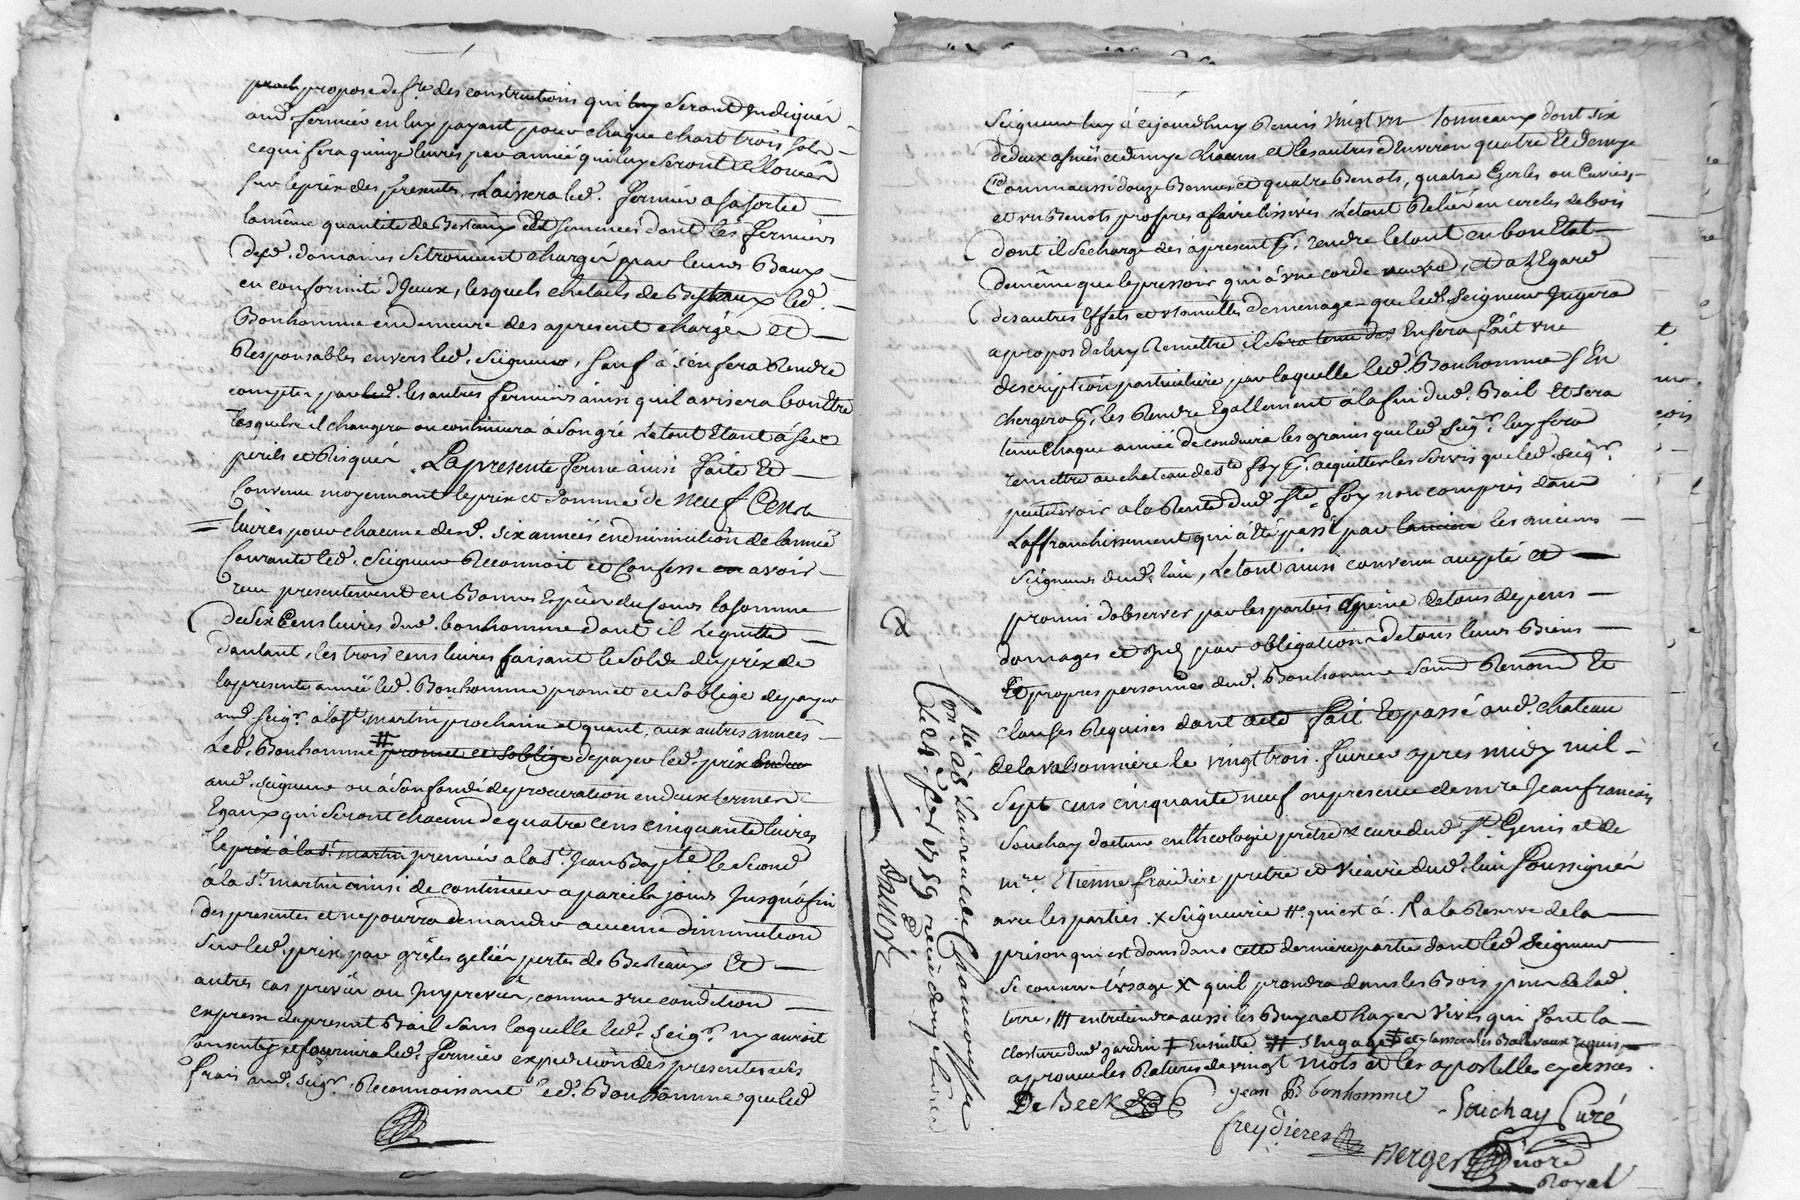 propose de fre des constructions qui luy seront Indiquér
aud. fermier en luy payant pour chaque chart trois sols
ce qui fera quinze livres par année qui luy seront allouéer
sur le prix des presentes, Laissera led. fermier a sa sortie
la même quantité de Bestiaux et semences dont les fermiers
desd. domaines se trouvent chargér par leurs Baux
en conformité d'Jceux, lesquels chetails de Bestiaux led.
Bonhomme en demeure des apresent chargér et
Responsables envers led. Seigneur, sauf à s'en fera Rendre
compte par led. les autres fermiers ainsi quil avisera bon Etre
lesquels il changera ou continuera à son gré Le tout Etant à ses
périls et Risquér. La presente ferme ainsi faite Et
Convenue moyennant le prix et Somme de neuf Cens
livres pour chacune desd. six années en diminution de l'année
Courante led. Seigneur Reconnoit et Confesse en avoir
reçu presentement en Bonnes Espèces du Cours la somme
de Six Cens livres dud. bonhomme dont il Le quitte
d'autant, les trois cens livres faisant le Solde du prix de
la presente année led. Bonhomme promet et soblige de payer
aud. seigr. à la St. martin prochaine et quant aux autres années
Led. Bonhomme # promet et soblige de payer led. prix
aud. seigneur ou à son fondé de procuration en deux termes
Egaux qui seront chacun de quatre cens cinquante livres
le prix à la St. martin premier a la St. Jean Bapte. le second
a la St. martin ainsi de continuer a pareils jours Jusqu'à fin
des presentes et ne pourra demander aucune diminution
Sur led. prix par grêles gelées pertes de Bestiaux Et
autres cas prevûs ou Jmprevûs, comme une condition
expresse du present Bail sans laquelle led. seigr. n'y auroit
consenty, et fournira led. fermier expedition des presentes a ses
frais aud. seigr. Reconnaissant led. Bonhomme que led.
Seigneur luy à cejourdhuy Remis vingt un Tonneaux dont six
de deux asnées et demye chacun et les autres d'Environ quatre Et demye
Comm'aussi douze Bennes et quatre Benots, quatre Gerles ou Cuvier
et un Benots propres a faire lissives Le tout Relié en cercles de bois
dont il se charge des apresent pr. rendre le tout en bon Etat
de même que le pressoir qui à une corde neuve, et a l'Egard
des autres Effets et Utancilles de menage que led. Seigneur Jugera
apropos de luy Remettre il sera tenu des En sera fait une
description particuliere par laquelle led. Bonhomme s'En
chergera pr. les Rendre Egallement à la fin dud. Bail Et sera
tenu chaque année de conduire les grains que led. Seigr. luy fera
remettre au chateau de Ste. foy pr. acquitter les servis que led. seigr.
peut devoir a la Rente dud. Ste. foy non compris dans
Laffranchissement qui à été passé par les anciens
Seigneurs dud. lieu, Le tout ainsi convenu accepté et
promis d'observer par les parties a peine de tous depens
domages et par obligation de tous leurs Biens
Et propres personnes dud. Bonhomme Sous Renond Et
clauses Requises dont acte fait Et passé aud. chateau
de la valsonniere le vingt trois fevrier apres midy mil
Sept cens cinquante neuf en presence de mre Jean francois
Souchay docteur en theologie pretre & curé dud. St. Genis et de
mre. Etienne fraidiere pretre et vicaire dud. lieu soussignér
avec les parties. x Seigneurie #. qui est à. la Reserve de la
prison qui est dans cette derniere partie dont led. Seigneur
se conserve L'usage x quil prendra dans les Bois pins de lad.
terre, ## entretiendra aussi les Buyer et hayer Vives qui font la
closture dud. jardin ‡ Ensuitte # s'engage et laissera les Baliveaux requis
aprouvé les Ratures de vingt mots et les apostilles cydessus.
De Beck jean B bonhomme Souchay Curé
freydieres
Berger nore Royal
Conlé à St Laurent de Chamousset
le 24 fer. 1759 reçu douze livres
Dausse